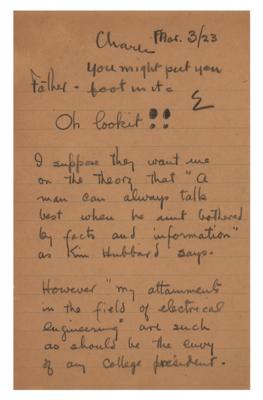 Mar. 3/23
You might put you
Father - foot in it =
E
Oh lookit !!
I suppose they want me
on the theory that "A
man can always talk
best when he aint bothered
by facts and information"
as Kin Hubbard says.
However "my attainments
in the field of electrical
engineering" are such
as should be the envy
of any college president.